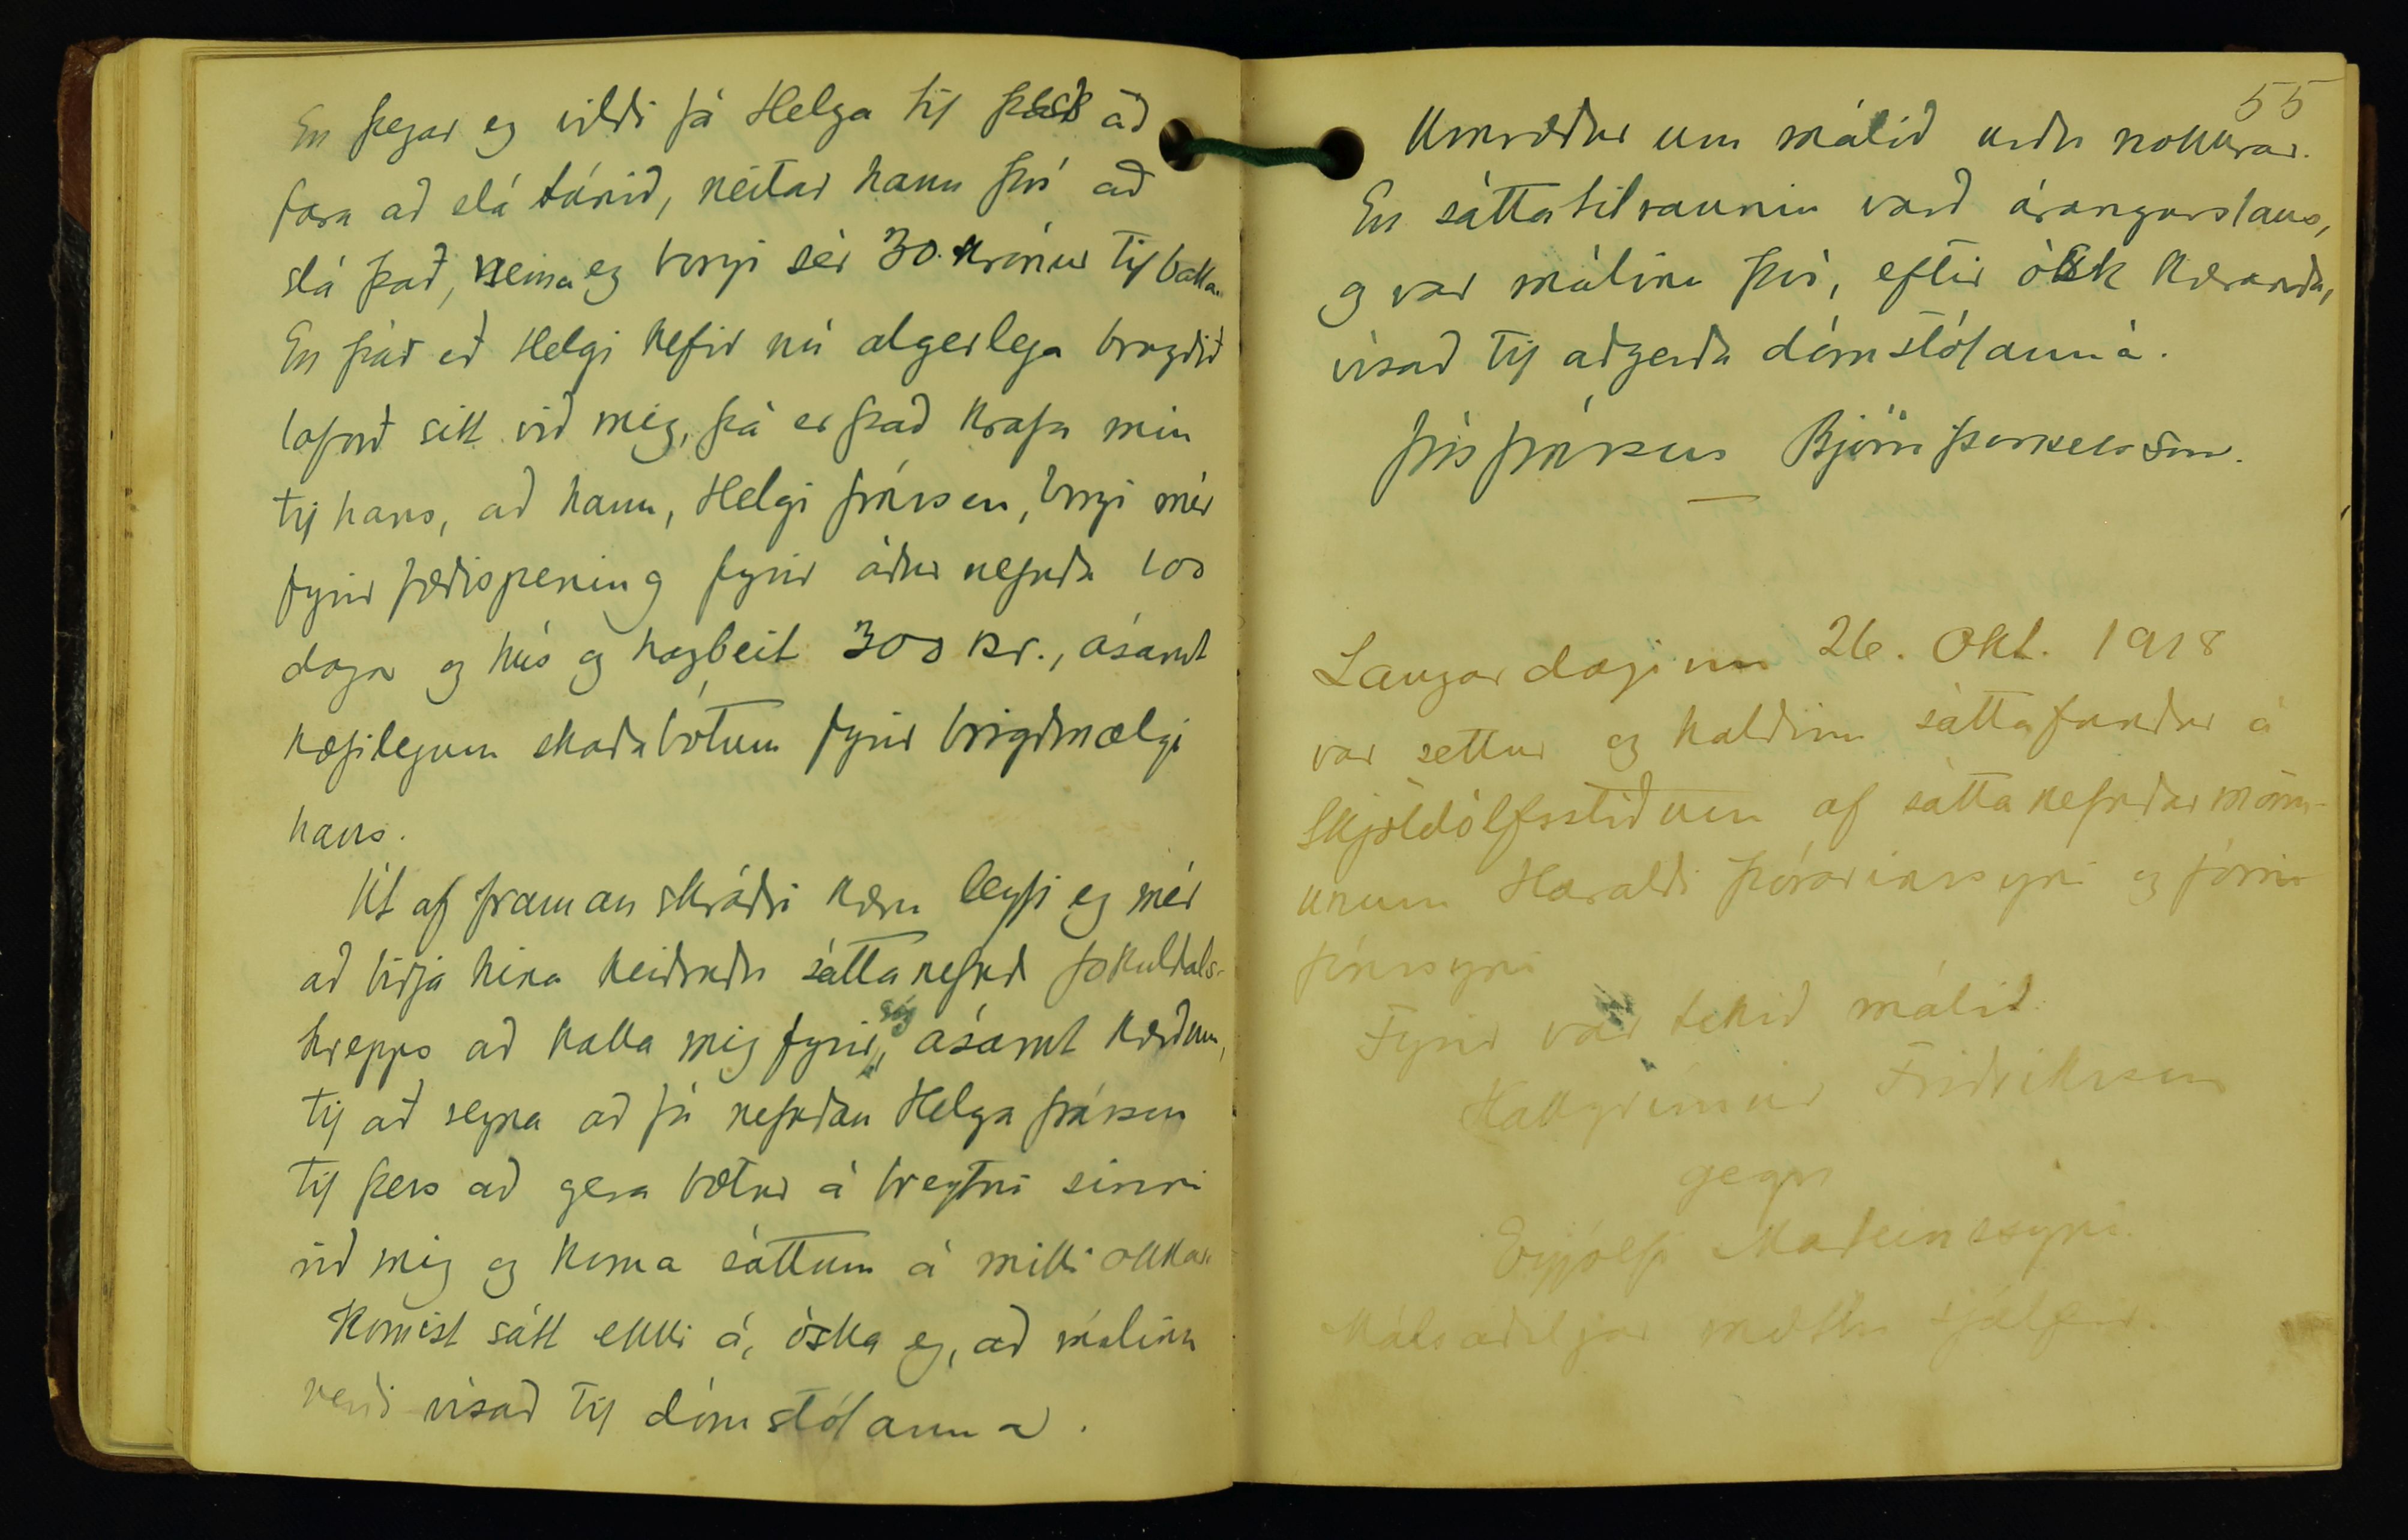 En þegar eg vildi fá Helga til þess að
fara að slá túnið, neitar hann því að
slá það, nema eg borgi sér 30. krónur til baka.
En þar eð Helgi hefir nú algerlega brugðið
loforð sitt við mig, þá er það krafa mín
til hans, að hann, Helgi Jónsson, borgi mér
fyrir fæðispening fyrir áður nefnda 100
daga og hús og hagbeit 300 kr., ásamt
hæfilegum skaðabótum fyrir brigðmælgi
hans.
Út af framanskráðri kæru leyfi eg mér
að biðja hina heiðruðu sáttanefnd Jökuldals-
hrepps að kalla mig fyrir sig, ásamt kærðum,
til að reyna að fá nefndan Helga Jónsson
til þess að gera bætur á breytni sinni
við mig og koma sáttum á milli okkar.
Komist sátt ekki á, óska eg, að málinu
verði vísað til dómstólanna.
55
Umræður um málið urðu nokkrar.
En sáttatilraunin varð árangurslaus,
og var málinu því, eftir ósk kæranda,
vísað til aðgerða dómstólanna.
Jón Jónsson Björn Þorkelsson.
Laugardaginn 26. Okt. 1918
var settur og haldinn sáttafundur á
Skjöldólfsstöðum af sáttanefndarmönn-
unum Haraldi Þórarinssyni og Jóni
Jónssyni
Fyrir var tekið málið
Hallgrímur Friðriksson
gegn
Eyjólfi Marteinssyni.
Málsaðiljar mættu sjálfir.